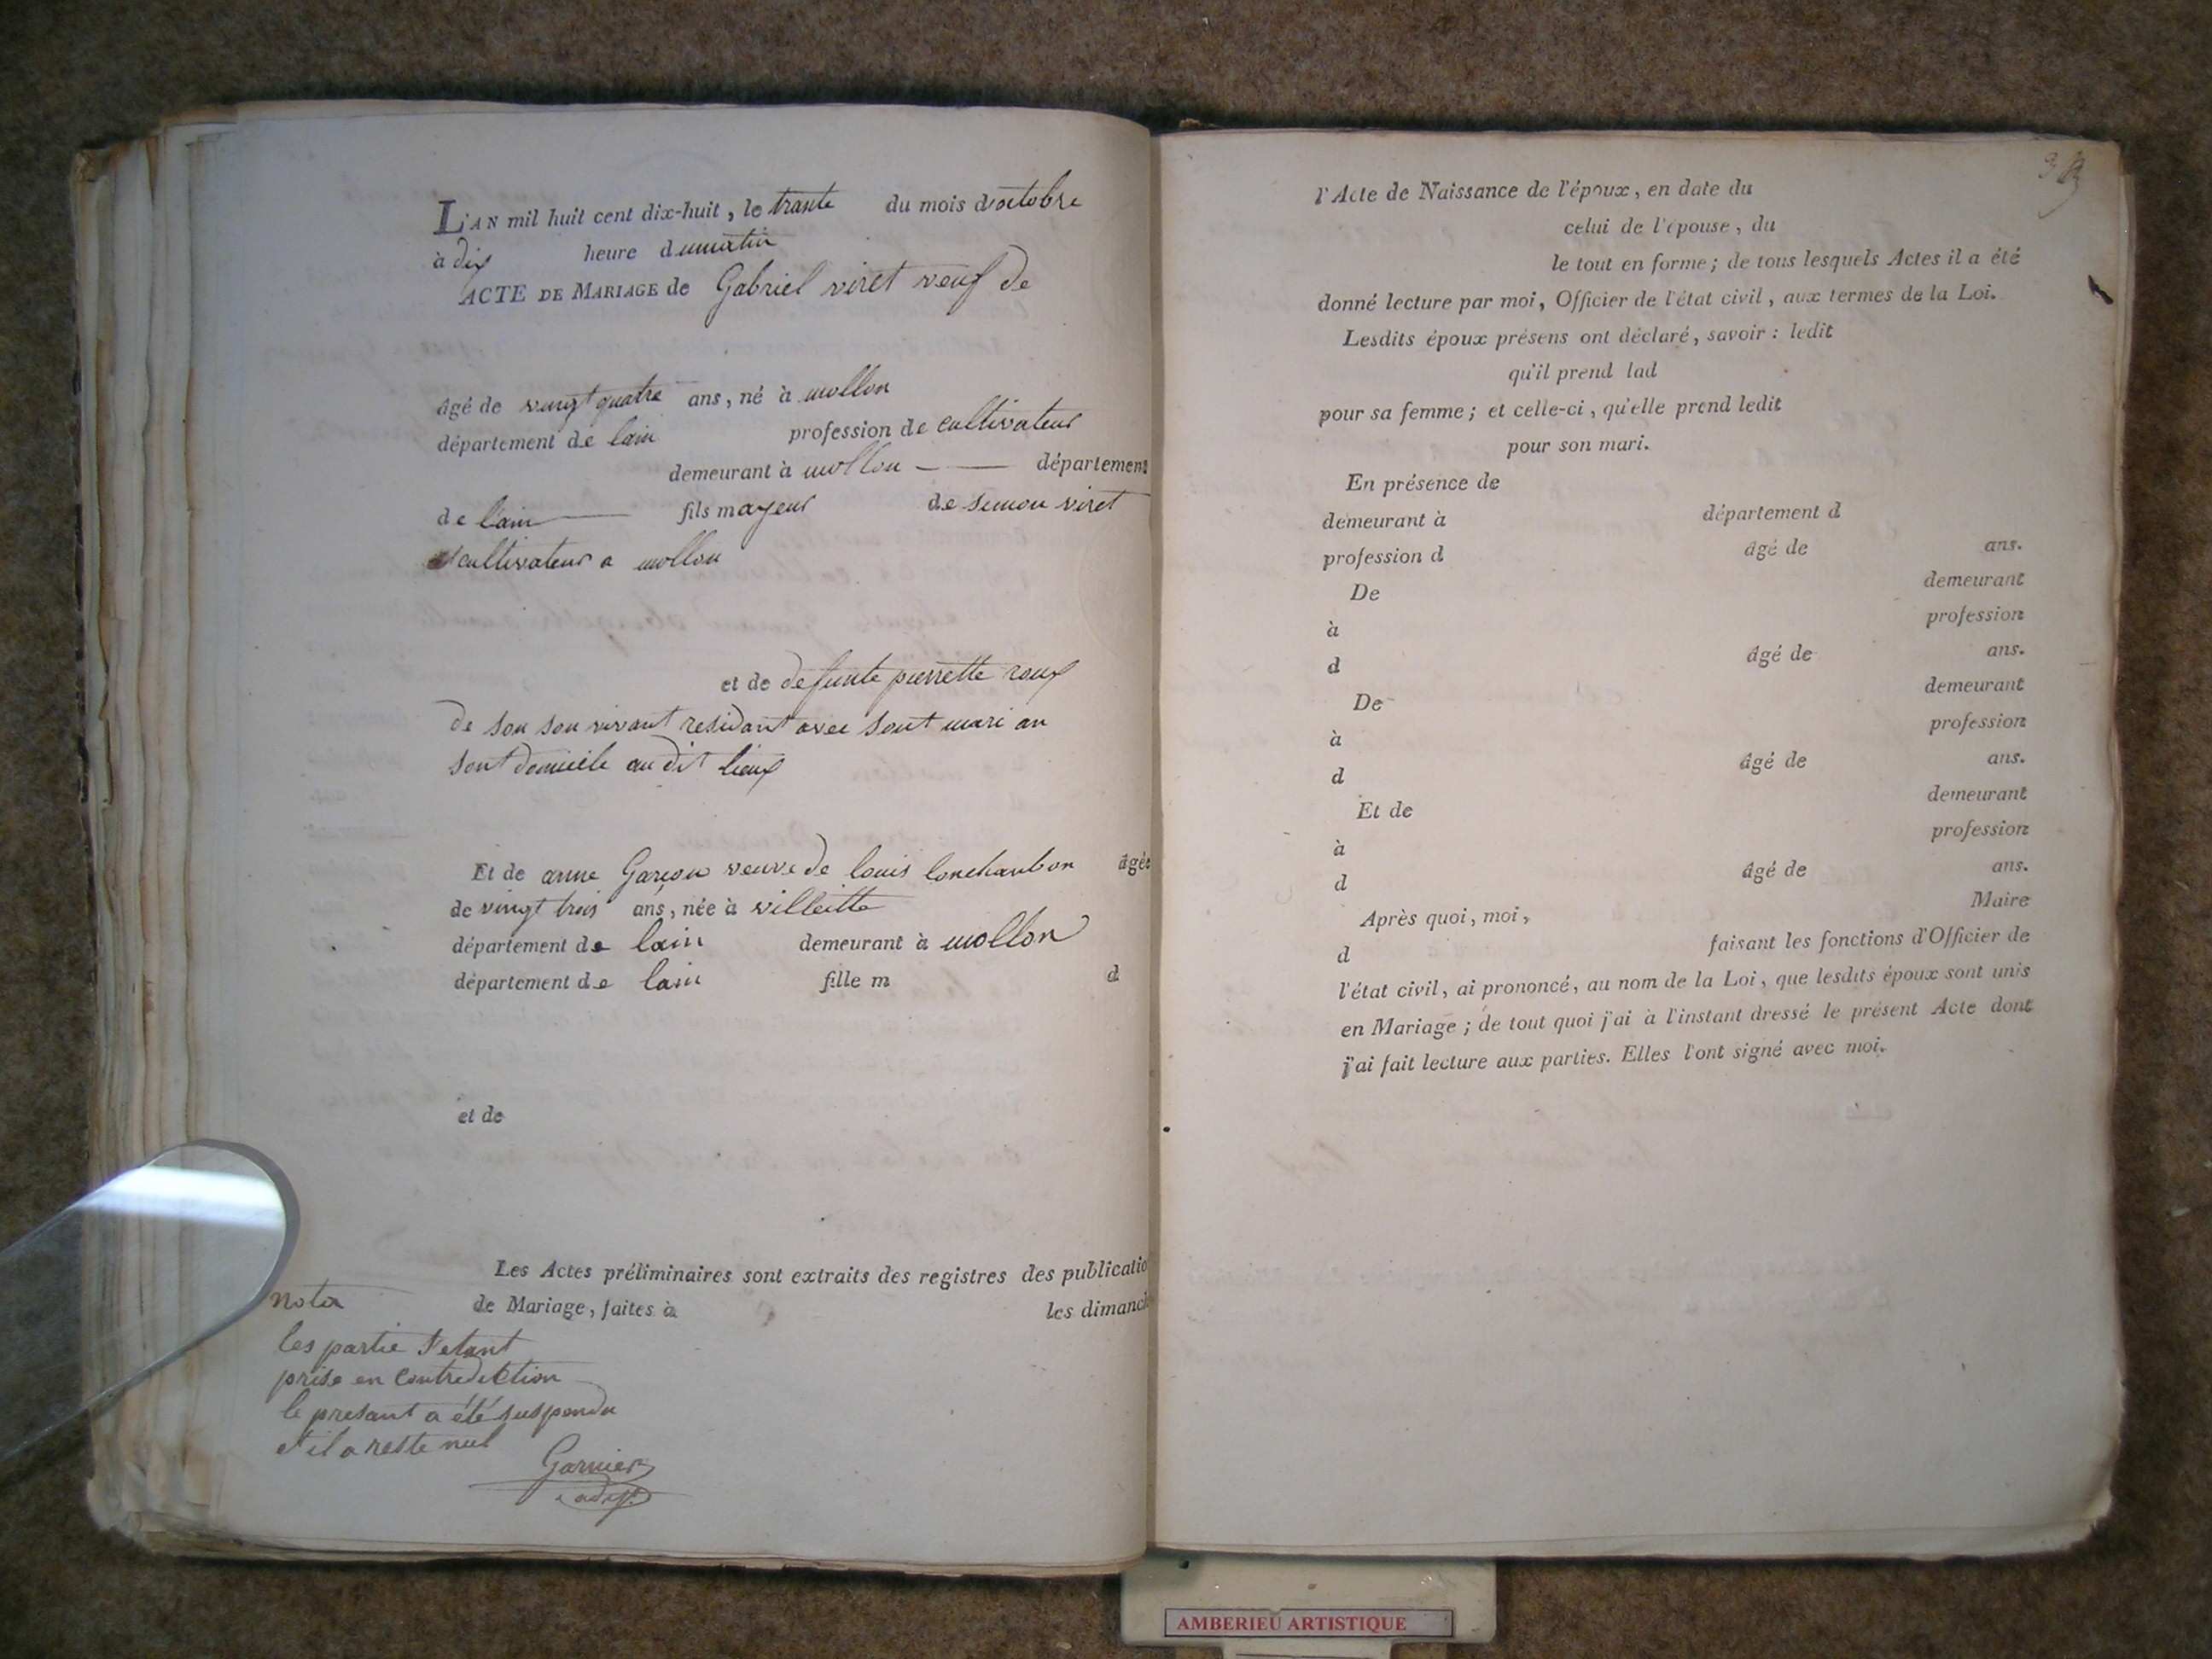 L'AN mil huit cent dix-huit, le trante du mois d'octobre
à dix heure dumatin
ACTE DE MARIAGE de Gabriel viret veuf de
âgé de vingt quatre ans, né à mollon
département de lain profession de cultivateur
demeurant à mollon département
de lain fils mayeur de simon viret
cultivateur a mollon
et de defunte pierrette roux
de son son vivant residant avec sont mari an
sont domicile au dit lieux
Et de anne Garçon veuve de louis lonchanbon âgée
de vingt trois ans, née à villiette
département de lain demeurant à mollon
département de lain fille m d
et de
Les Actes préliminaires sont extraits des registres des publicatio
de Mariage, faites à les dimanch
nota
les partie s'etant
prise en Contrediction
le presant a été suspendu
et il a resté nul
Garnier
adjt
l'Acte de Naissance de l'époux, en date du
celui de l'épouse, du
le tout en forme; de tous lesquels Actes il a été
donné lecture par moi, Officier de l'état civil, aux termes de la Loi.
Lesdits époux présens ont déclaré, savoir: ledit
qu'il prend lad
pour sa femme; et celle-ci, qu'elle prend ledit
pour son mari.
En présence de
demeurant à département d
profession d âgé de ans.
De demeurant
à profession
d âgé de ans.
De demeurant
à profession
d âgé de ans.
Et de demeurant
à profession
d âgé de ans.
Après quoi, moi, Maire
d faisant les fonctions d'Officier de
l'état civil, ai prononcé, au nom de la Loi, que lesdits époux sont unis
en Mariage; de tout quoi j'ai à l'instant dressé le présent Acte dont
j'ai fait lecture aux parties. Elles l'ont signé avec moi.
AMBERIEU ARTISTIQUE